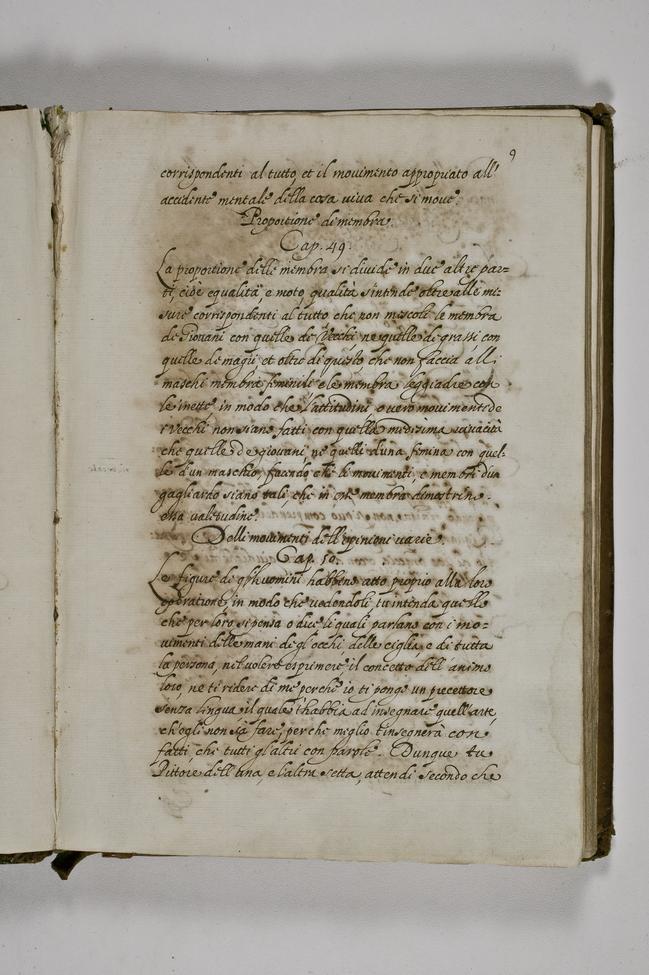 9
corrispondenti al tutto, et il movimento appropriato all'
accidente mentale della cosa viva che si move.
Proportione di membra.
Cap. 49.
La proportione delle membra si divide in due altre par=
ti, cioè equalità, e moto, qualità s'intende oltre alle mi=
sure corrispondenti al tutto che non mescoli le membra
de Giovani con quelle de Vecchi, ne quelle di grassi con
quelle de magri, et oltre di questo che non faccia alli
maschi membra feminili e le membra leggiadre con
le inette in modo che l'attitudini overo movimenti de
i Vecchi non siano fatti con quella medesima vivacità
che quelle de giovani, ne quelli d'una femina con quel=
le d'un maschio, facendo che li movimenti, e membri d'un
gagliardo siano tali che in esse membra dimostrino
essa valetudine.
Delli movimenti dell'openioni varie.
Cap. 50.
Le figure de gl'huomini habbino atto proprio alla loro
operatione, in modo che vedendoli, tu intenda quello
che per loro si pensa o dice li quali parlano con i mo=
vimenti delle mani de gl'occhi, delle ciglia, e di tutta
la persona, nel volere esprimere il concetto dell'animo
loro, ne ti ridere di me perche io ti pongo un precettore
senza lingua il quale t'habbia ad insegnare quell'arte,
ch'egli non sà fare, perche meglio t'insegnerà con
fatti, che tutti gl'altri con parole. Dunque tu
Pittore dell'una, e l'altra setta, attendi secondo che